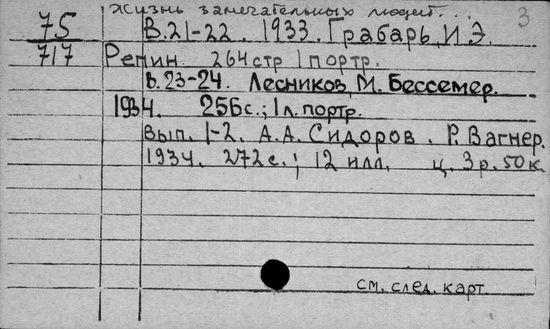 Жизнь замечательных людей... 3
75 В.21-22. 1933. Грабарь, И.Э.
717 Репин. 264 стр 1 портр.
В.23-24. Лесников, М. Бессемер.
1934. 256 с.; 1 л. портр.
Вып. 1-2. А.А. Сидоров. Р. Вагнер.
1934. 272 с.; 12 илл. ц. 3 р. 50 к.
см. след. карт.